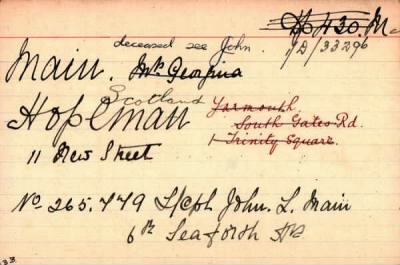 Ho 430. Ma
deceased see John. /D/33296
Main. Mrs Georgina
Scotland
Hopeman Yarmouth.
South Gates Rd.
1 Trinity Square.
11 New Street
No 265.779 L/Cpl. John. L. Main
6th Seaforth Hrs
33